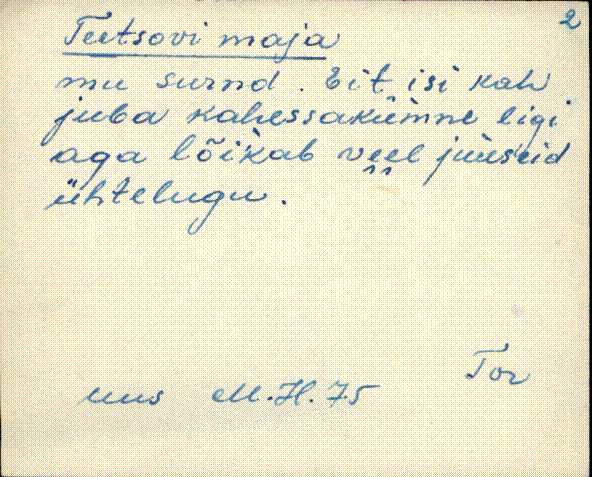 2
Teetsovi maja
mu surnd. Eit isi kah
juba kahessakümne ligi
aga lõikab veel juuseid
ühtelugu.
Tor
uus M.H.75